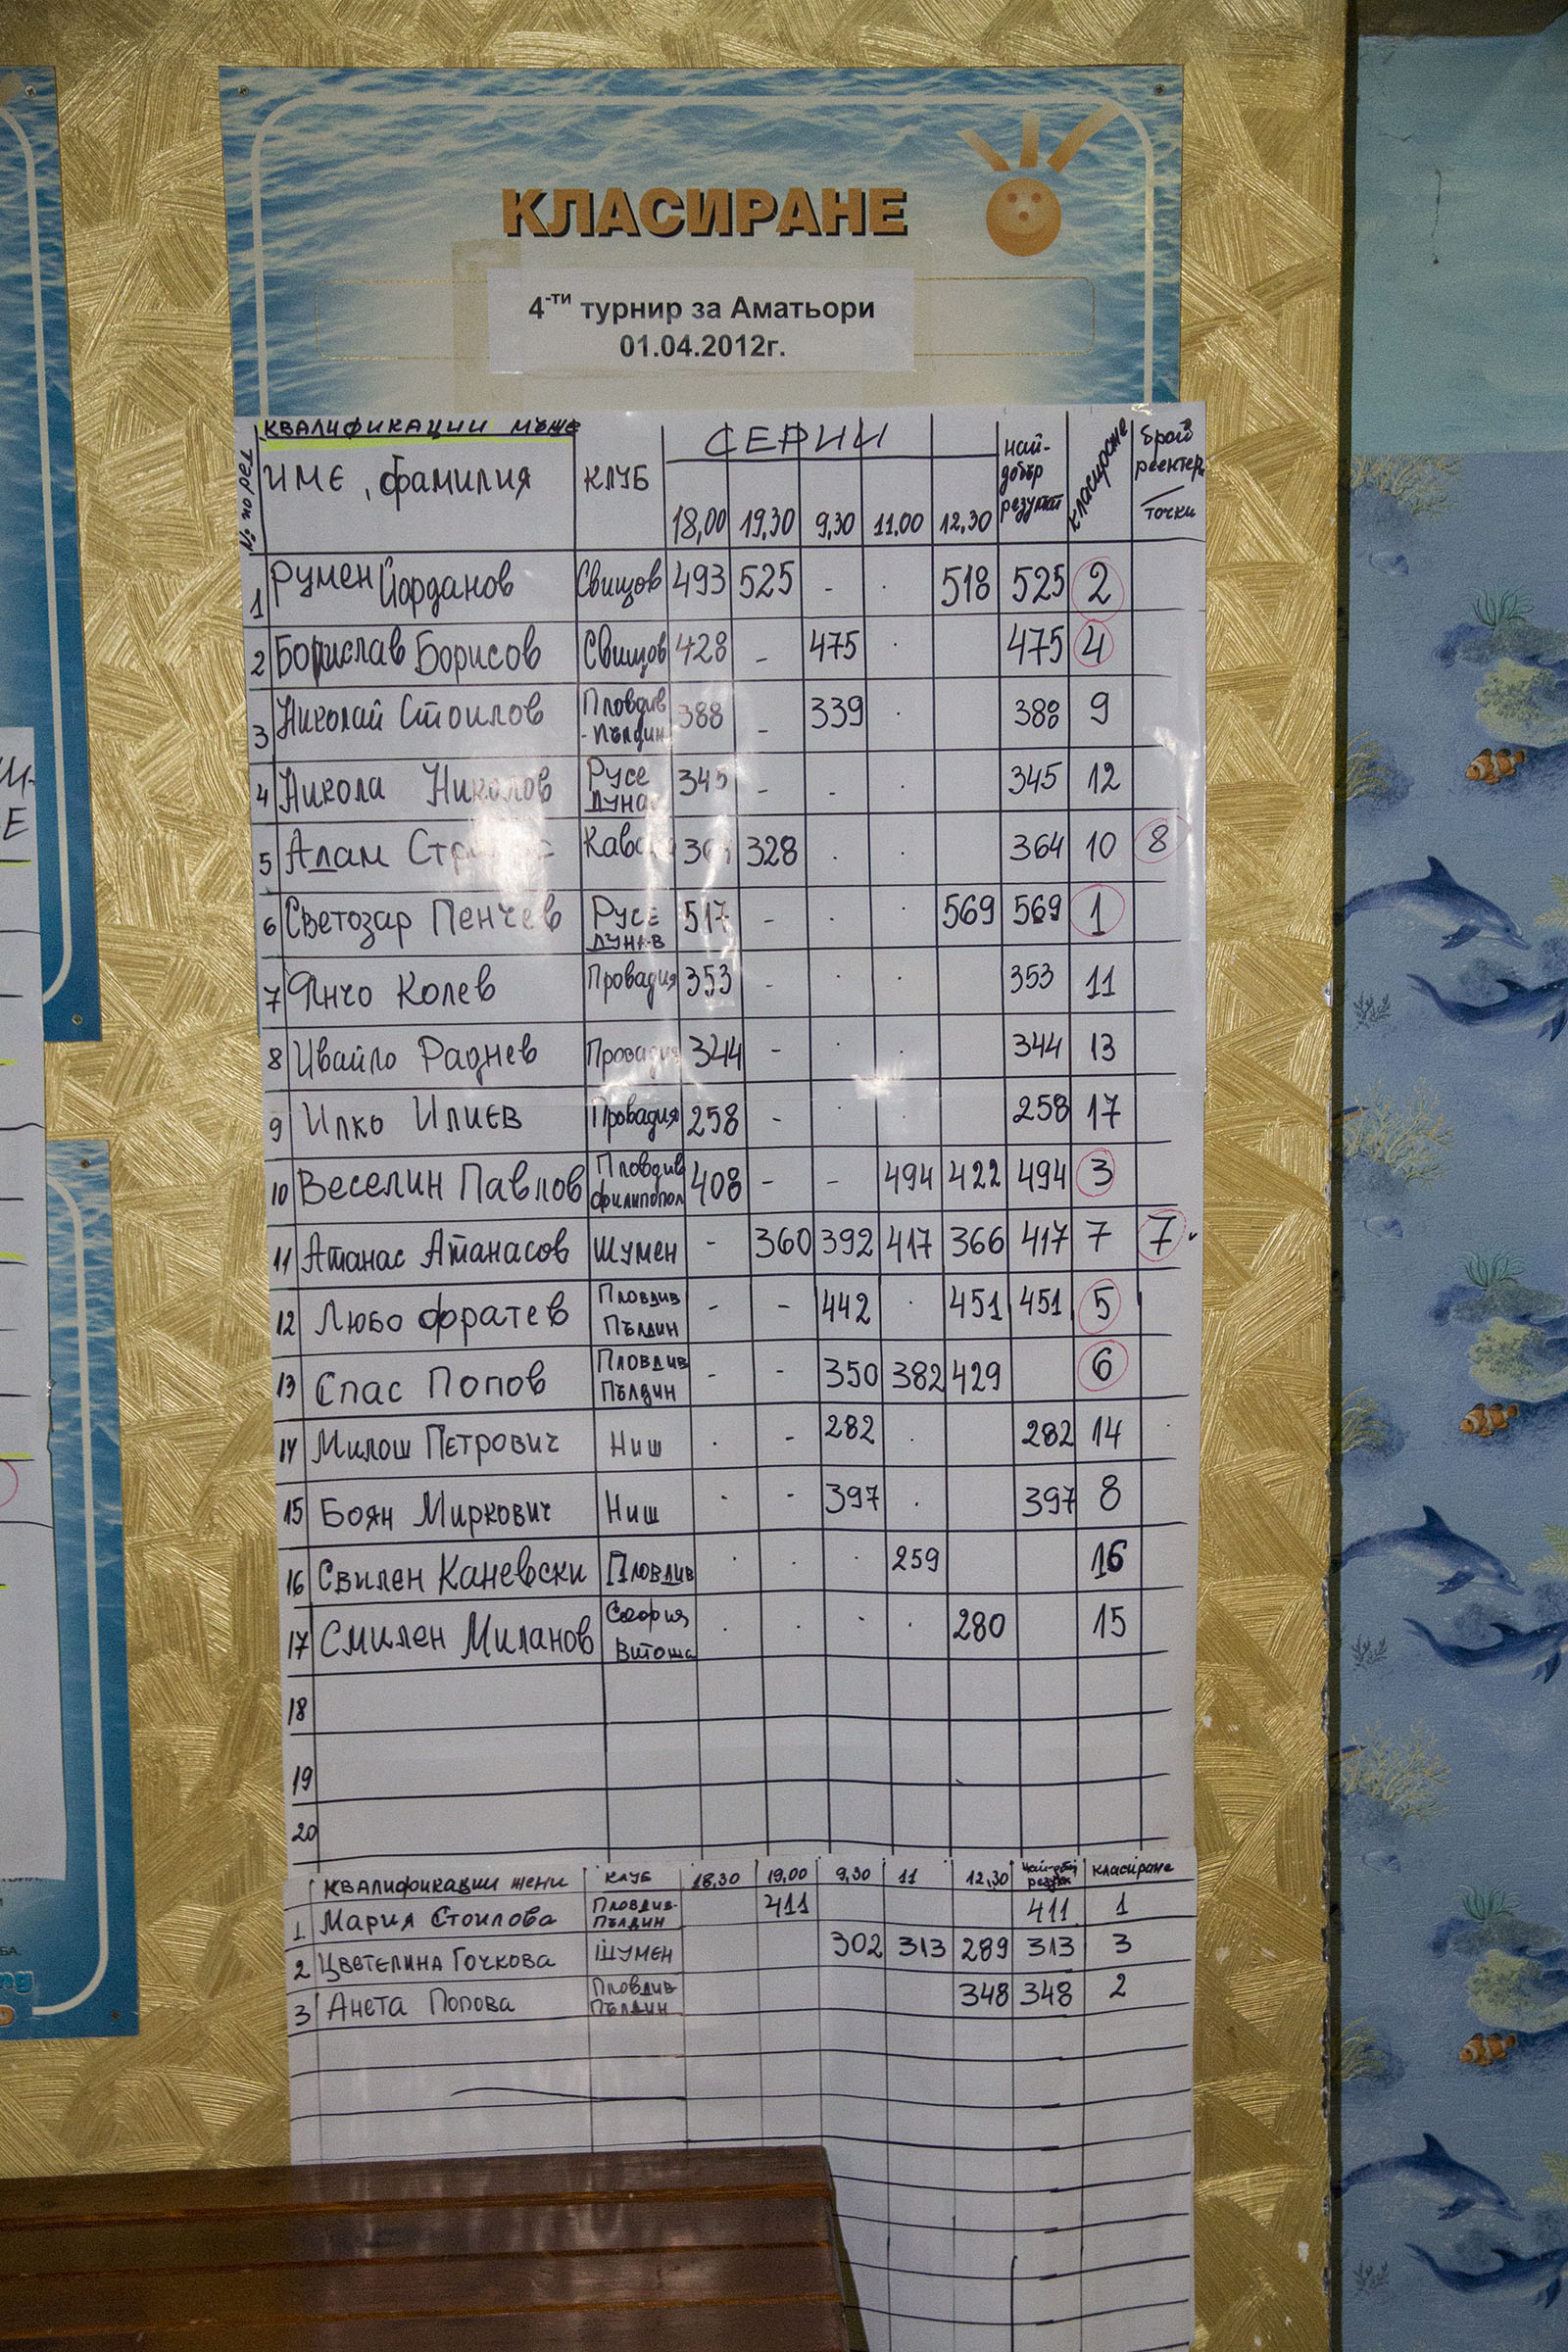 КЛАСИРАНЕ
4-ти турнир за Аматьори
01.04.2012г.
КВАЛИФИКАЦИИ мъже
№ по ред ИМЕ, фамилия КЛУБ СЕРИИ най-добър резултат класиране брой реентери / точки
18,00 19,30 9,30 11.00 12.30
1 Румен Йорданов Свищов 493 525 - · 518 525 2
2 Борислав Борисов Свищов 428 - 475 · 475 4
3 Николай Стоилов Пловдив - Пълдин 388 - 339 · 388 9
4 Никола Николов Русе Дунав 345 - - · 345 12
5 Адам 328 · · 364 10 8
6 Светозар Пенчев Русе Дунав 517 - · · 569 569 1
7 Янчо Колев Провадия 353 - · · 353 11
8 Ивайло Раднев Провадия 344 - · · 344 13
9 Илко Илиев Провадия 258 - · · 258 17
10 Веселин Павлов Пловдив филипопол 408 - - 494 422 494 3
11 Атанас Атанасов Шумен - 360 392 417 366 417 7 7
12 Любо Фратев Пловдив Пълдин - - 442 · 451 451 5
13 Спас Попов Пловдив Пълдин - - 350 382 429 6
14 Милош Петрович Ниш · - 282 · 282 14
15 Боян Миркович Ниш · - 397 · 397 8
16 Свилен Каневски Пловдив · · · 259 16
17 Смилен Миланов София Витоша · · · · 280 15
18
19
20
Квалификации жени клуб 18,30 19,00 9,30 11 12,30 най-добър резулт класиране
1 Мария Стоилова Пловдив-Пълдин 411 411 1
2 Цветелина Гочкова Шумен 302 313 289 313 3
3 Анета Попова Пловдив-Пълдин 348 348 2